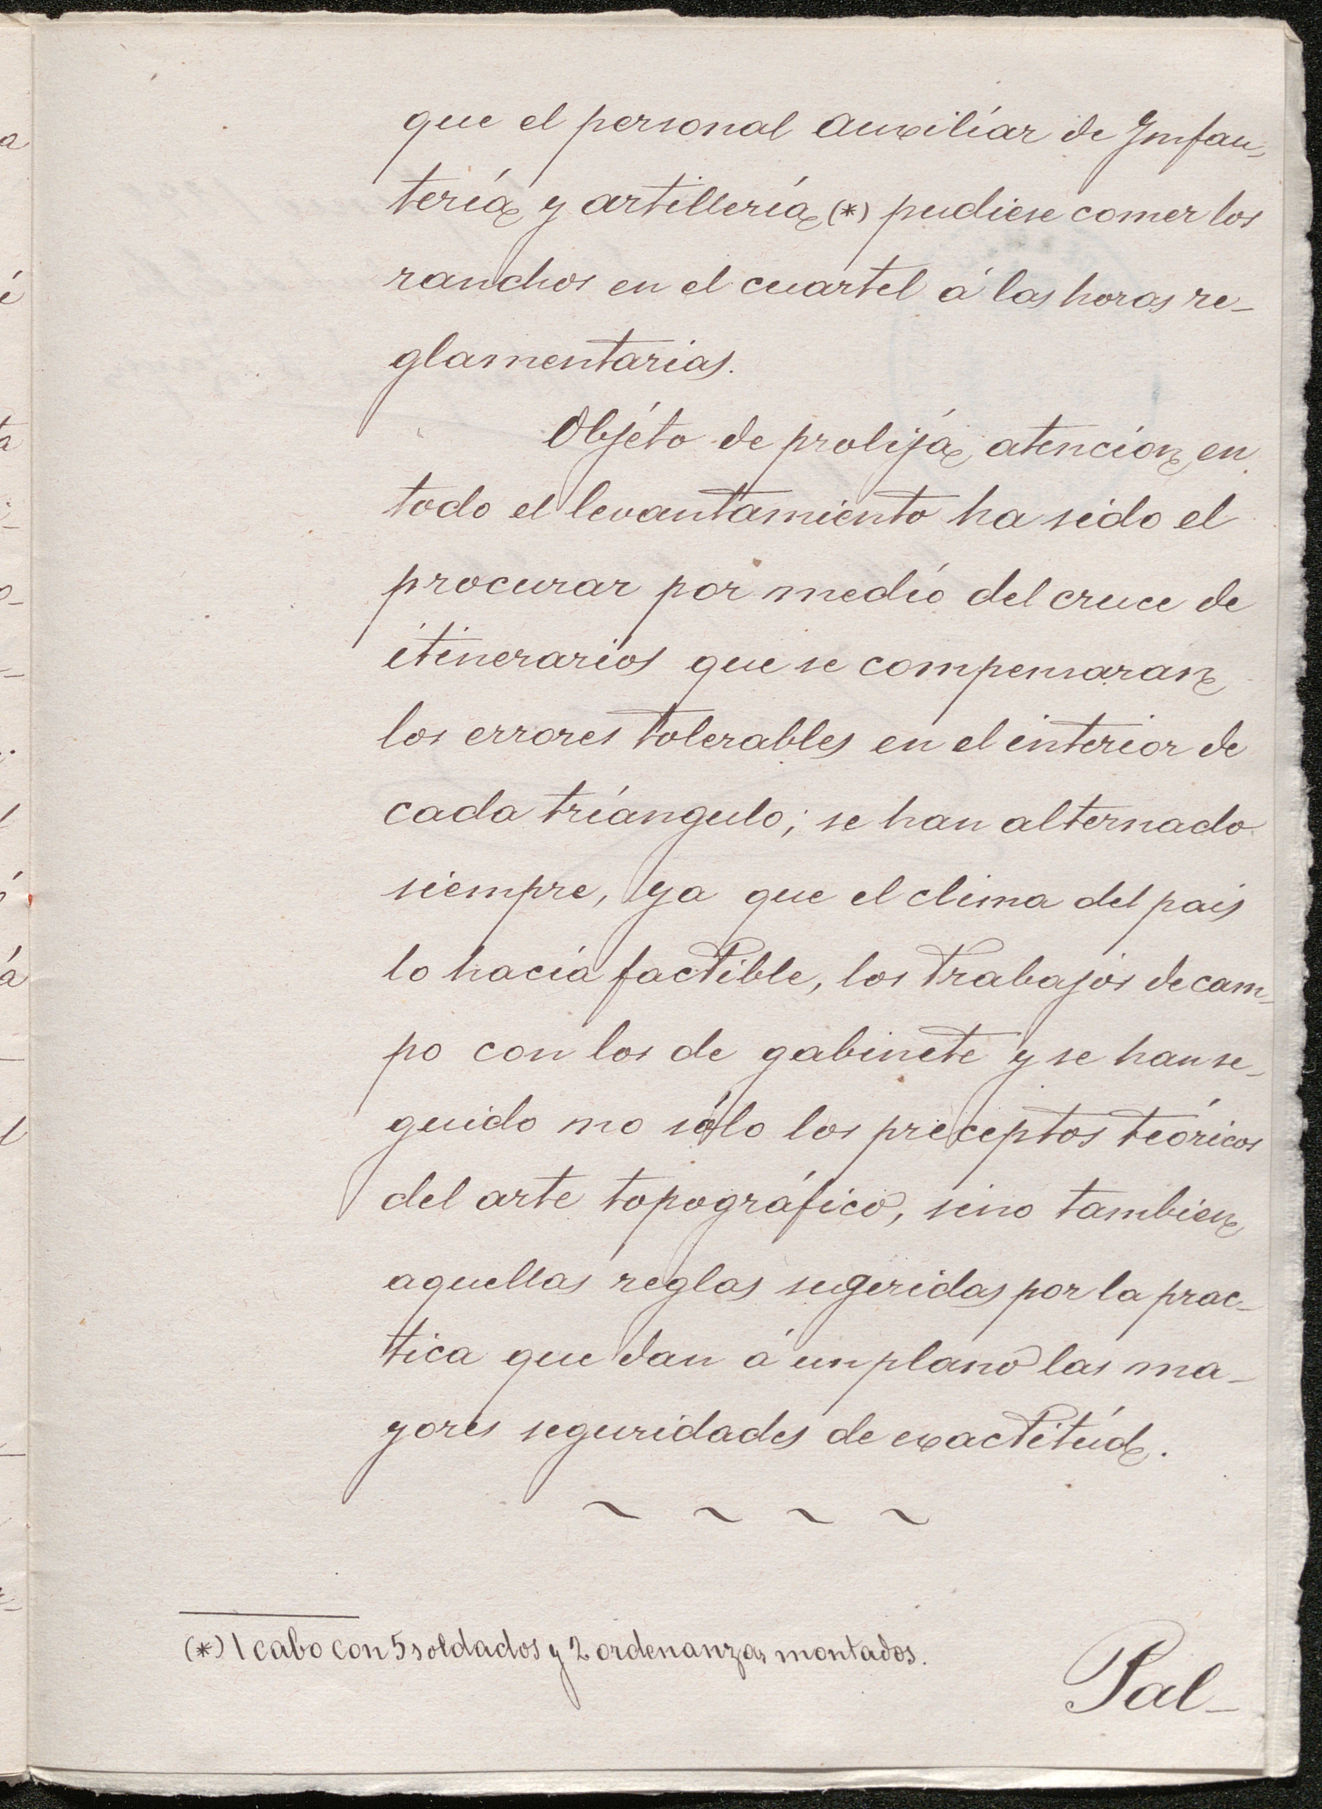 que el personal auxiliar de Ynfan-
tería y artillería (*) pudiese comer los
ranchos en el cuartel á las horas re-
glamentarias.
Objéto de prolijá atencion en
todo el levantamiento ha sido el
procurar por medio del cruce de
itinerarios que se compensaran
los errores tolerables en el interior de
cada triángulo; se han alternado
siempre, ya que el clima del pais
lo hacía factible, los trabajos de cam-
po con los de gabinete y se han se-
guido no sólo los preceptos teóricos
del arte topográfico, sino tambien
aquellas reglas sugeridas por la prac-
tica que dan á un plano las ma-
yores seguridades de exactitúd.
~ ~ ~ ~
(*) 1 cabo con 5 soldados y 2 ordenanzas montados.
Pal-